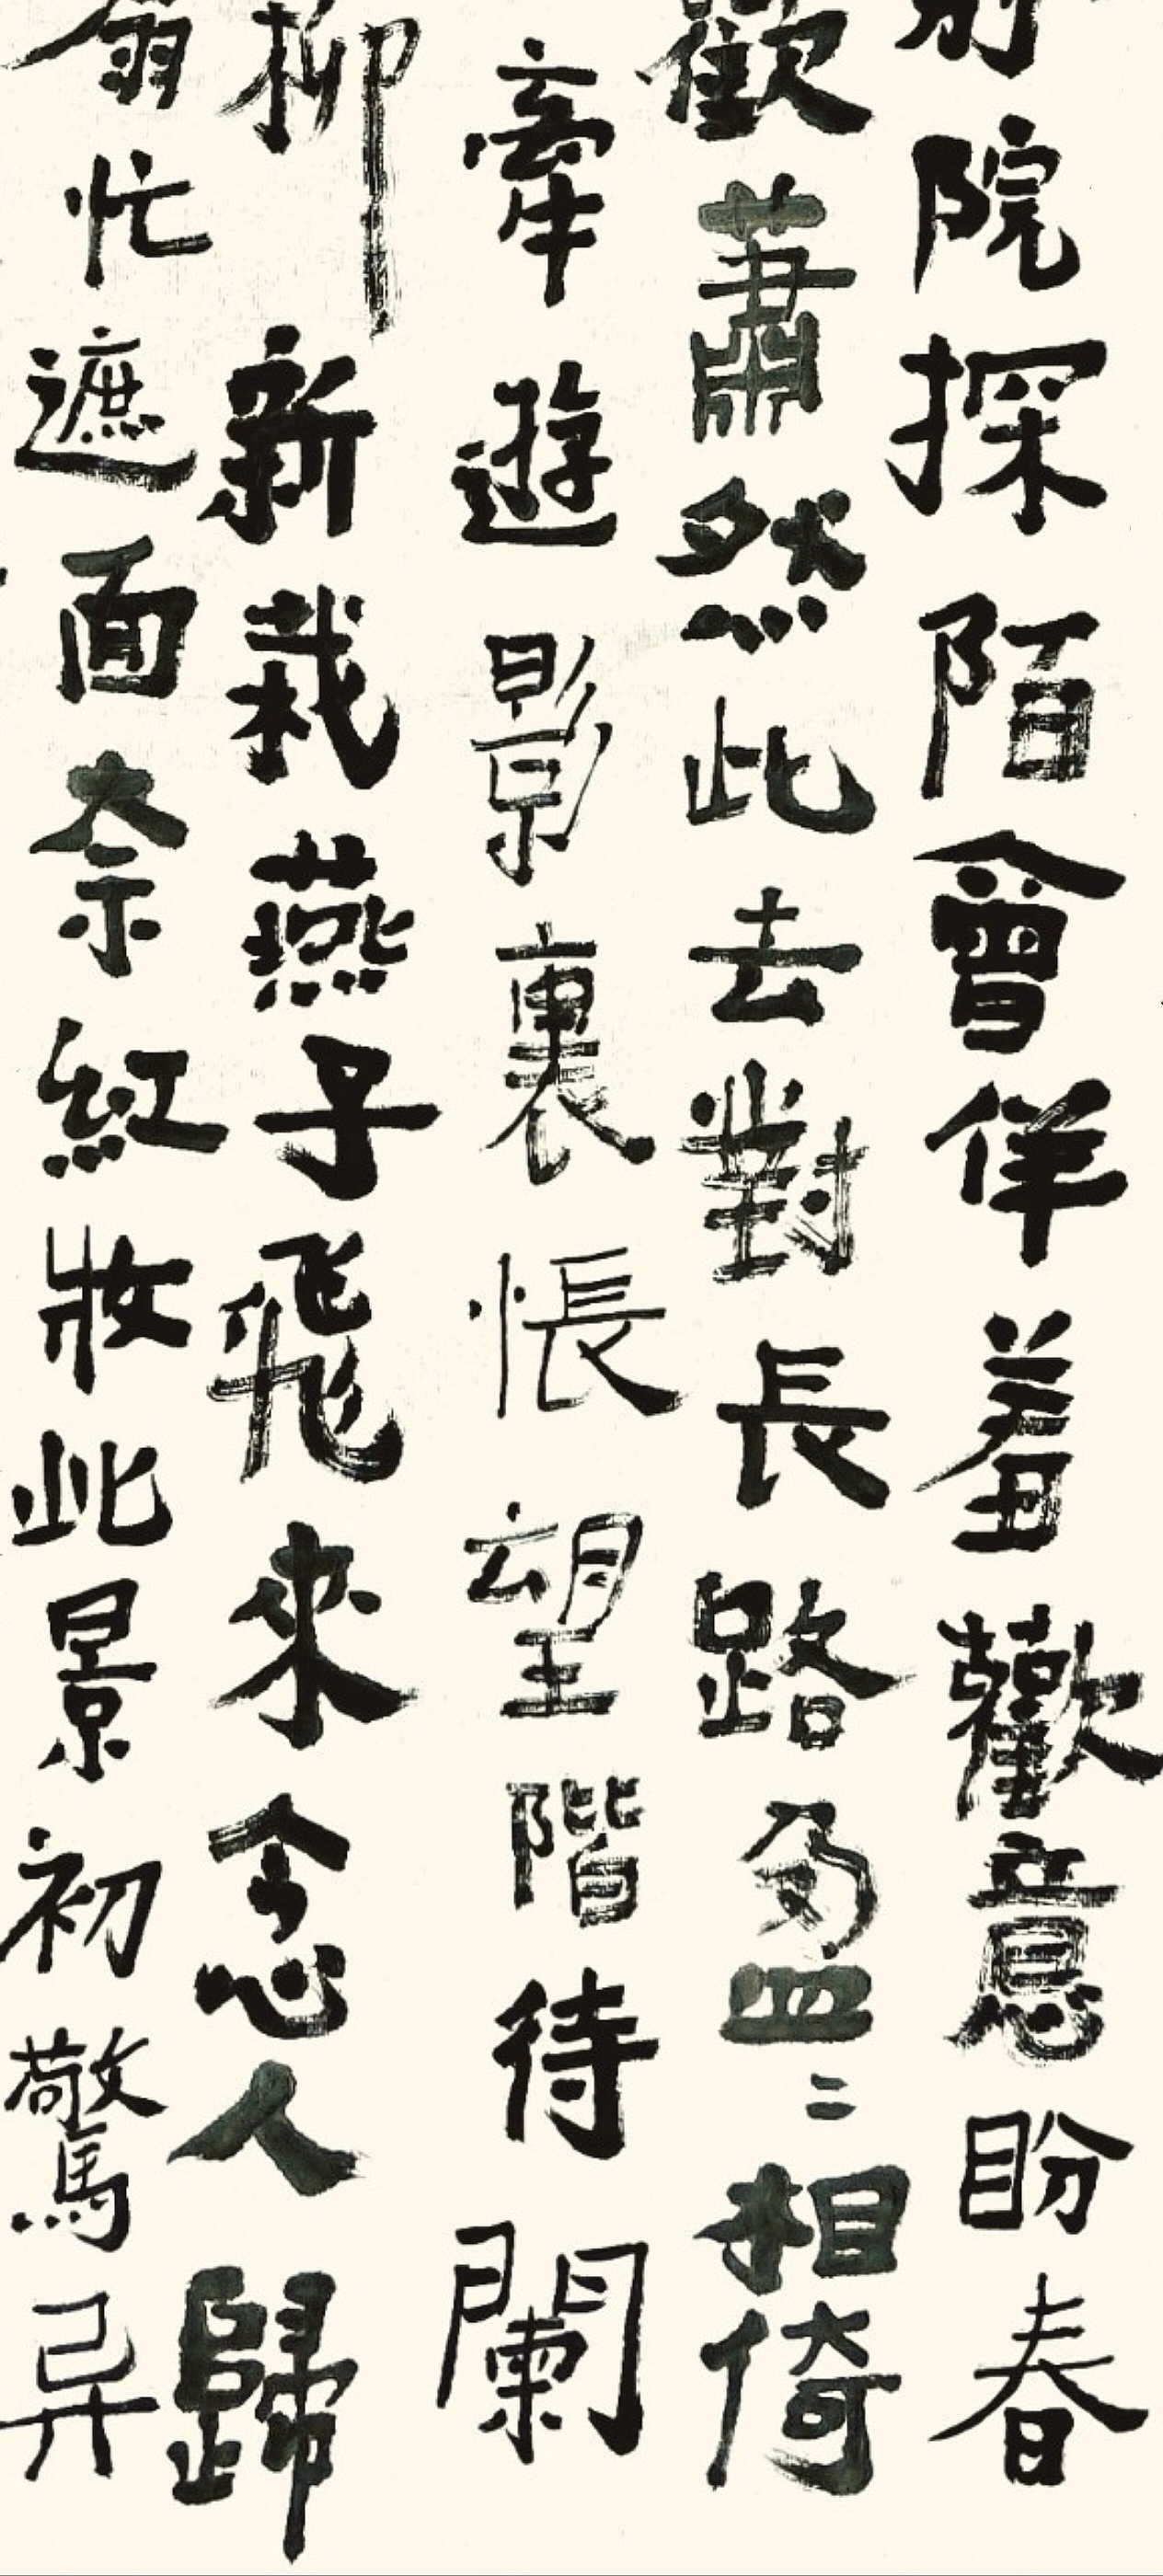 院探陌會佯羞歡意盼春
歡蕭然此去對長路盈〻相倚
牽遊影裏悵望階待闌
柳新栽燕子飛來念人歸
忙遮面奈紅妝此景初驚异